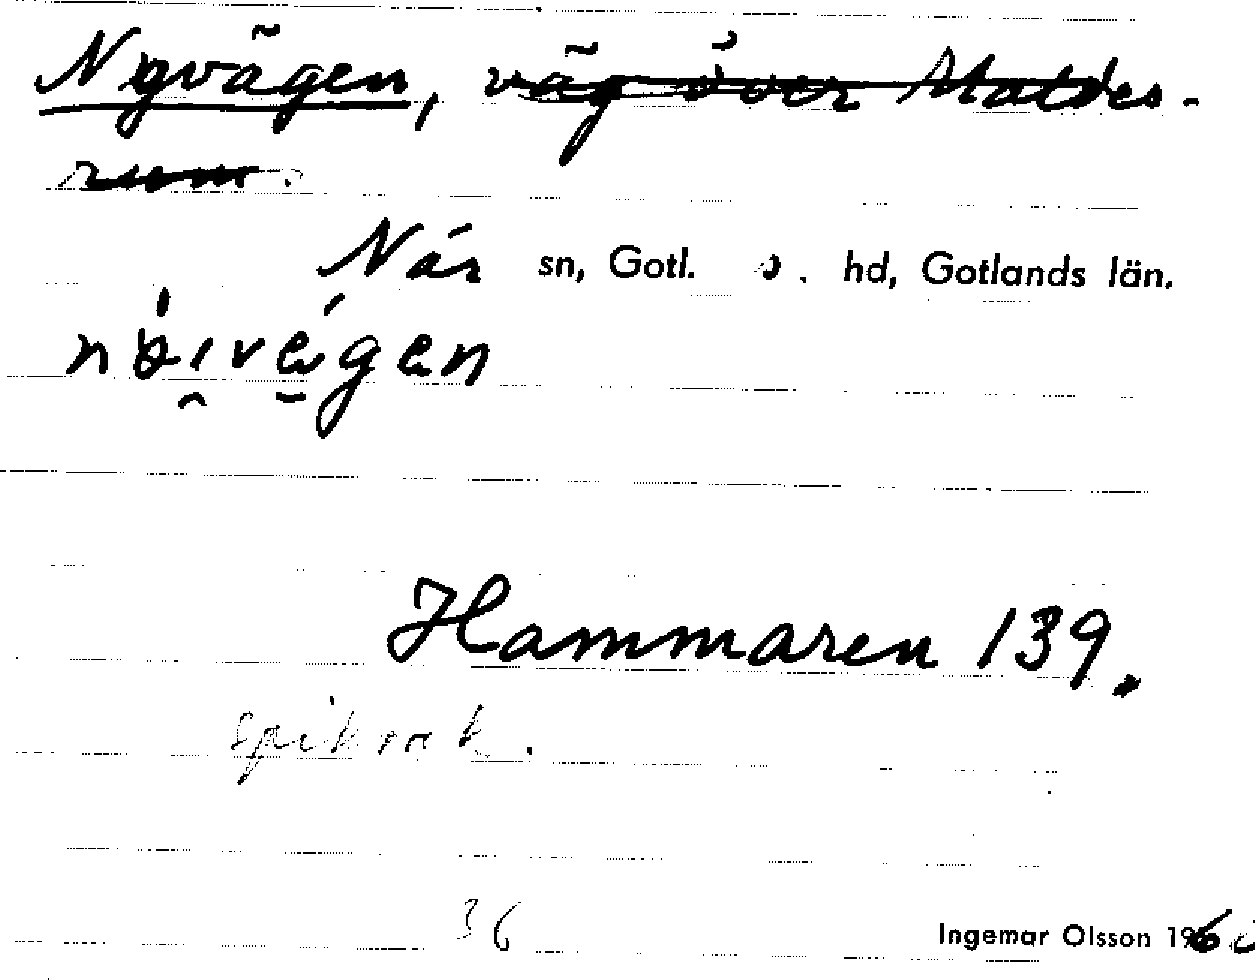 Nyvägen, väg över Maldes-
rum.
När sn, Gotl. s. hd, Gotlands län.
Hammaren 139.
spikrak.
36
Ingemar Olsson 1960